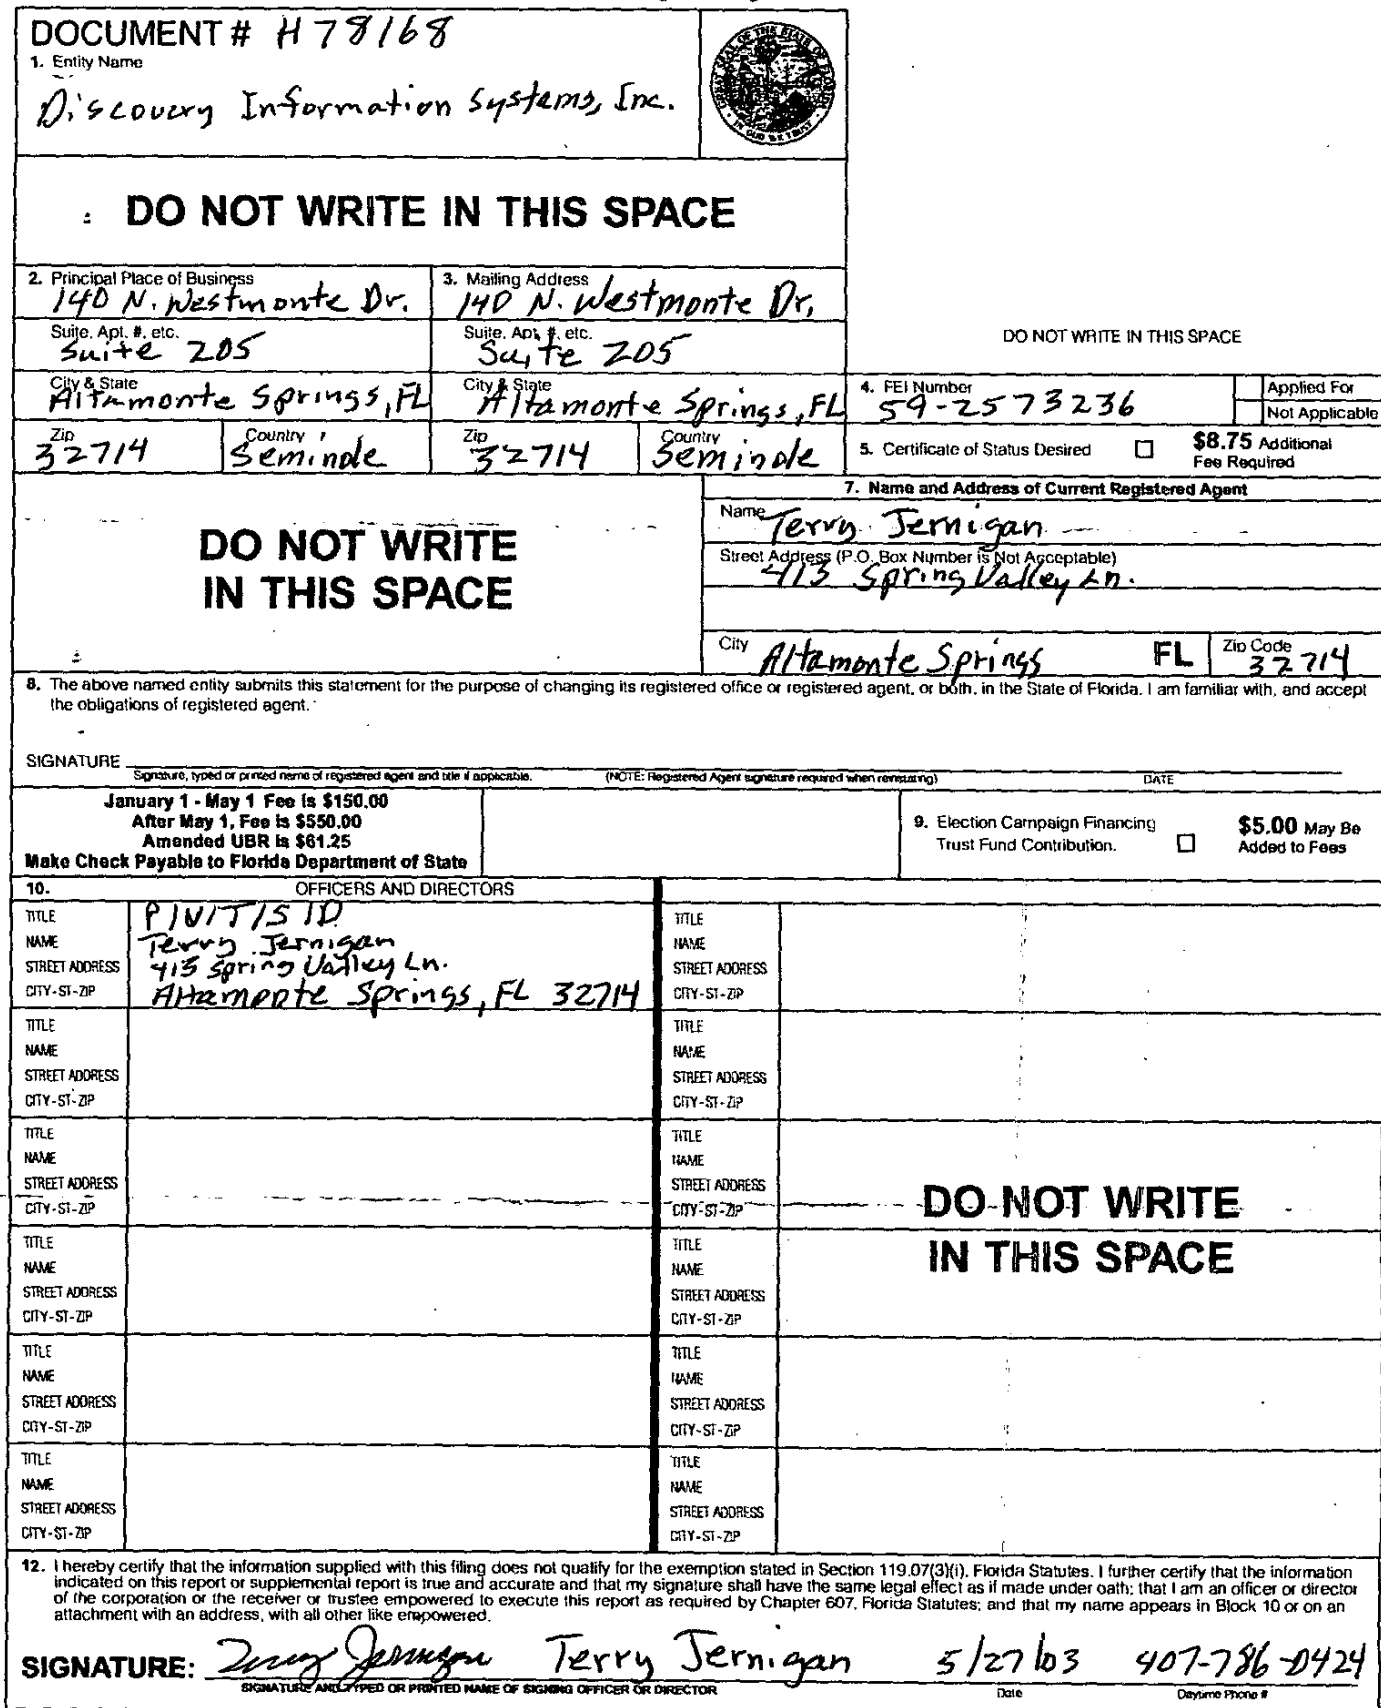 DOCUMENT # H78168
1. Entity Name
Discovery Information Systems, Inc.
DO NOT WRITE IN THIS SPACE
2. Principal Place of Business
140 N. Westmonte Dr.
3. Mailing Address
140 N. Westmonte Dr.
Suite, Apt. #, etc.
Suite 205
Suite, Apt. #, etc.
Suite 205
DO NOT WRITE IN THIS SPACE
City & State
Altamonte Springs, FL
City & State
Altamonte Springs, FL
4. FEI Number
59-2573236
Applied For
Not Applicable
Zip
32714
Country
Seminole
Zip
32714
Country
Seminole
5. Certificate of Status Desired
$8.75 Additional
Fee Required
DO NOT WRITE
IN THIS SPACE
7. Name and Address of Current Registered Agent
Name Terry Jernigan
Street Address (P.O. Box Number is Not Acceptable)
413 Spring Valley Ln.
City Altamonte Springs FL Zip Code 32714
8. The above named entity submits this statement for the purpose of changing its registered office or registered agent, or both, in the State of Florida. I am familiar with, and accept
the obligations of registered agent.
SIGNATURE
Signature, typed or printed name of registered agent and title if applicable. (NOTE: Registered Agent signature required when reinstating) DATE
January 1 - May 1 Fee is $150.00
After May 1, Fee is $550.00
Amended UBR is $61.25
Make Check Payable to Florida Department of State
9. Election Campaign Financing
Trust Fund Contribution.
$5.00 May Be
Added to Fees
10. OFFICERS AND DIRECTORS
TITLE P/V/T/S/D
NAME Terry Jernigan
STREET ADDRESS 413 Spring Valley Ln.
CITY-ST-ZIP Altamonte Springs, FL 32714
TITLE
NAME
STREET ADDRESS
CITY-ST-ZIP
TITLE
NAME
STREET ADDRESS
CITY-ST-ZIP
TITLE
NAME
STREET ADDRESS
CITY-ST-ZIP
TITLE
NAME
STREET ADDRESS
CITY-ST-ZIP
TITLE
NAME
STREET ADDRESS
CITY-ST-ZIP
TITLE
NAME
STREET ADDRESS
CITY-ST-ZIP
TITLE
NAME
STREET ADDRESS
CITY-ST-ZIP
TITLE
NAME
STREET ADDRESS
CITY-ST-ZIP
TITLE
NAME
STREET ADDRESS
CITY-ST-ZIP
TITLE
NAME
STREET ADDRESS
CITY-ST-ZIP
TITLE
NAME
STREET ADDRESS
CITY-ST-ZIP
DO NOT WRITE
IN THIS SPACE
12. I hereby certify that the information supplied with this filing does not qualify for the exemption stated in Section 119.07(3)(i), Florida Statutes. I further certify that the information
indicated on this report or supplemental report is true and accurate and that my signature shall have the same legal effect as if made under oath; that I am an officer or director
of the corporation or the receiver or trustee empowered to execute this report as required by Chapter 607, Florida Statutes; and that my name appears in Block 10 or on an
attachment with an address, with all other like empowered.
SIGNATURE: Terry Jernigan Terry Jernigan 5/27/03 407-786-0424
SIGNATURE AND TYPED OR PRINTED NAME OF SIGNING OFFICER OR DIRECTOR Date Daytime Phone #